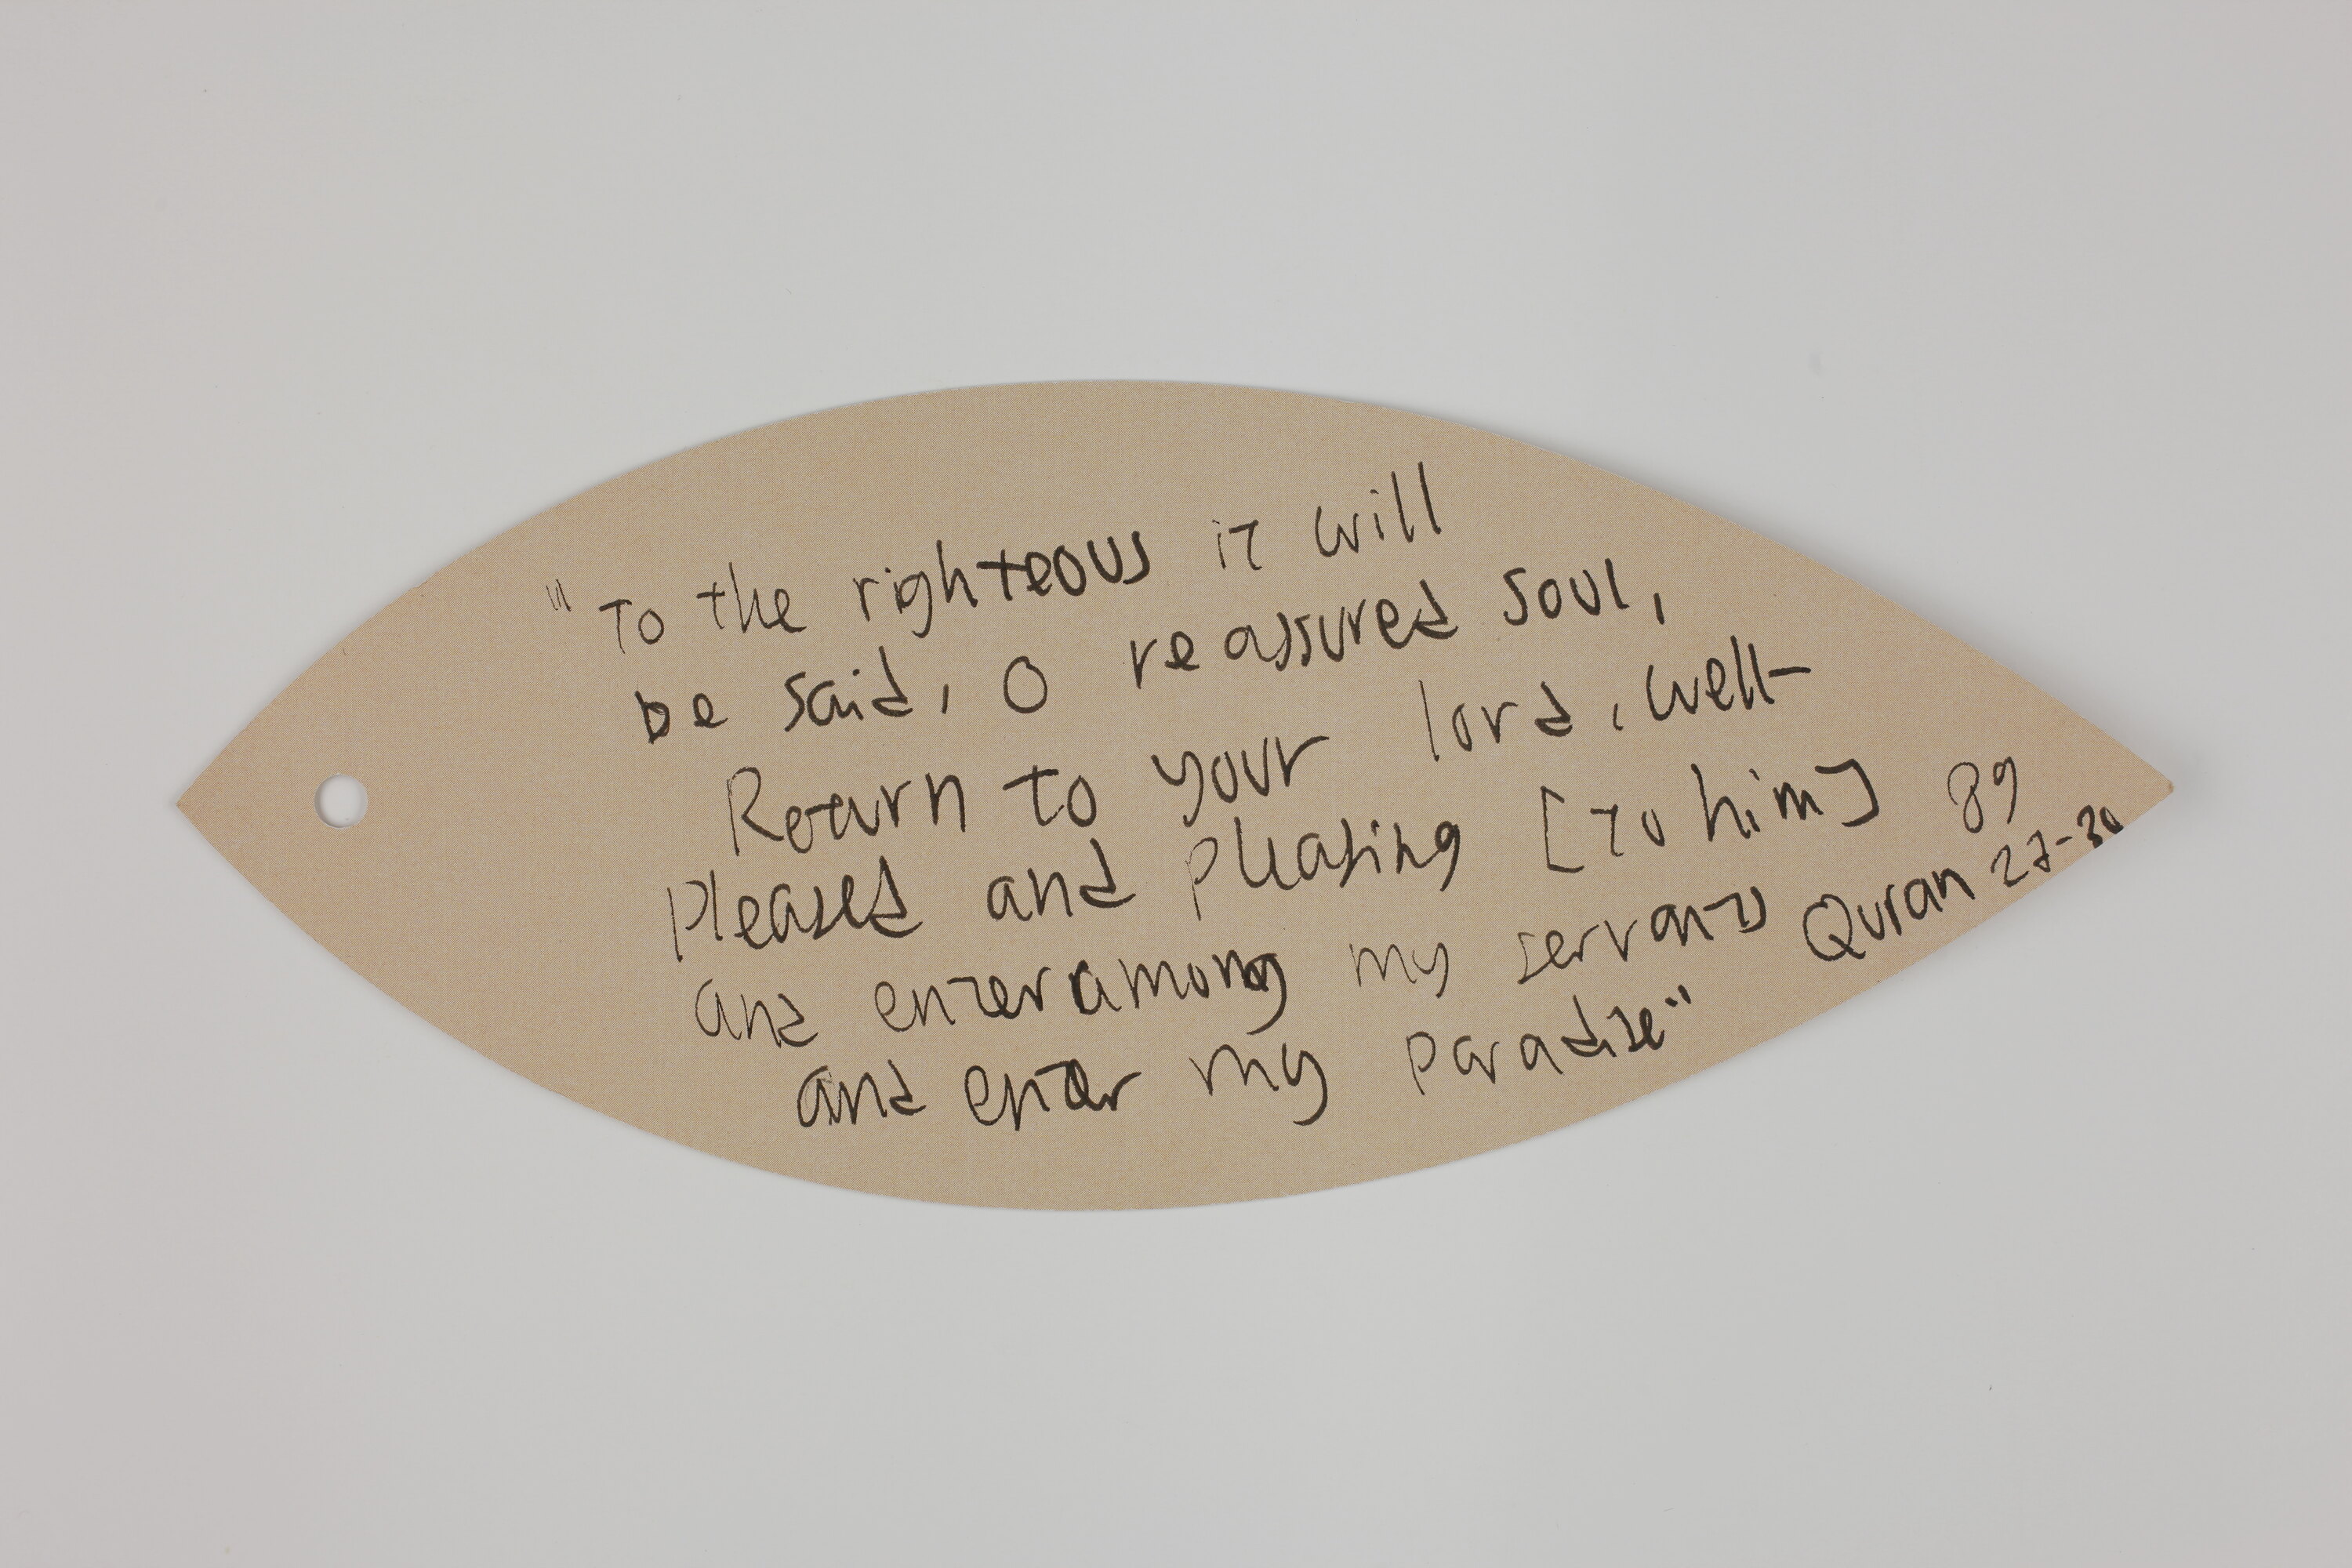 "To the righteous it will
be said, O reassured soul,
Return to your lord, well-
Pleased and pleasing [to him]
and enter among my servants
and enter my Paradise"
89
Quran 27-30